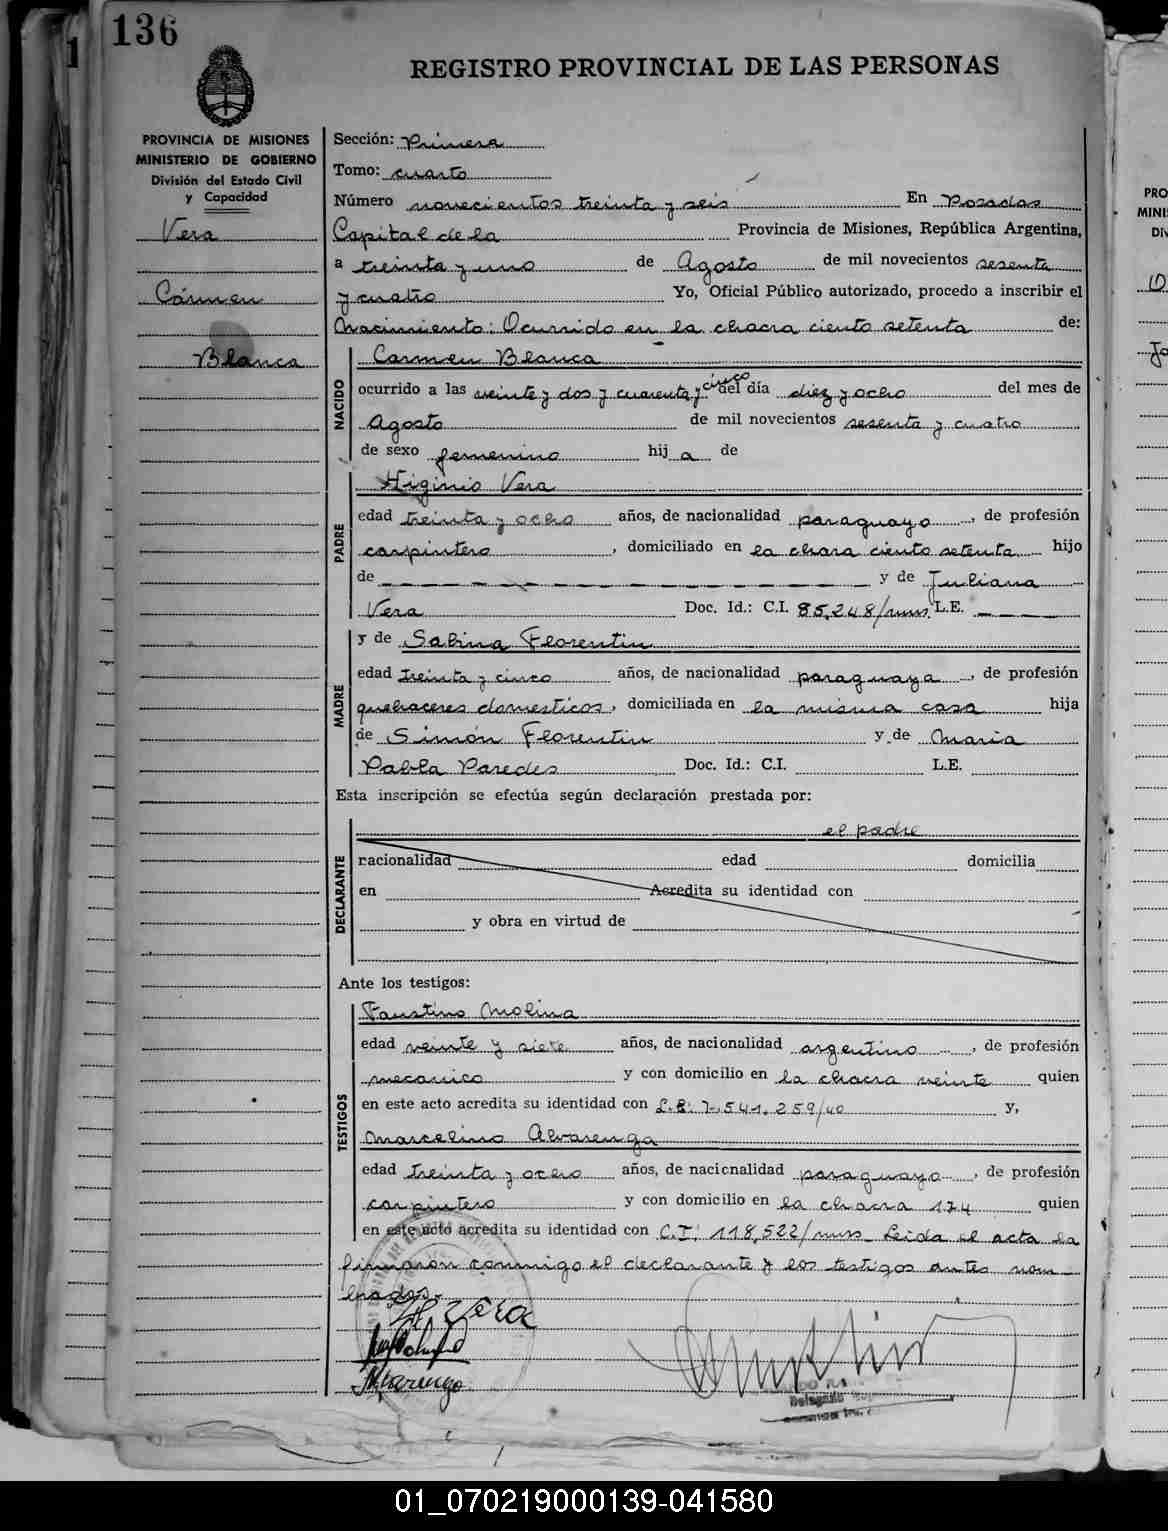 136
REGISTRO PROVINCIAL DE LAS PERSONAS
PROVINCIA DE MISIONES
MINISTERIO DE GOBIERNO
División del Estado Civil
y Capacidad
Vera
Cármen
Blanca
Sección: Primera
Tomo: cuarto
Número novecientos treinta y seis En Posadas
Capital de la Provincia de Misiones, República Argentina,
a treinta y uno de Agosto de mil novecientos sesenta
y cuatro Yo, Oficial Público autorizado, procedo a inscribir el
Nacimiento: Ocurrido en la chacra ciento setenta de:
NACIDO
Carmen Blanca
ocurrido a las veinte y dos y cuarenta y cinco del día diez y ocho del mes de
Agosto de mil novecientos sesenta y cuatro
de sexo femenino hij a de
PADRE
Higinio Vera
edad treinta y ocho años, de nacionalidad paraguayo, de profesión
carpintero, domiciliado en la chara ciento setenta hijo
de y de Juliana
Vera Doc. Id.: C.I. 85.248/mnes. L.E.
MADRE
y de Sabina Florentin
edad treinta y cinco años, de nacionalidad paraguaya, de profesión
quehaceres domesticos, domiciliada en la misma casa hija
de Simón Florentin y de Maria
Pabla Paredes Doc. Id.: C.I. L.E.
Esta inscripción se efectúa según declaración prestada por:
DECLARANTE
el padre
nacionalidad edad domicilia
en Acredita su identidad con
y obra en virtud de
Ante los testigos:
TESTIGOS
Faustino Molina
edad veinte y siete años, de nacionalidad argentino, de profesión
mecanico y con domicilio en la chacra veinte quien
en este acto acredita su identidad con L.E: 7.541.259/40 y,
Marcelino Alvarenga
edad treinta y ocho años, de nacionalidad paraguayo, de profesión
carpintero y con domicilio en la chacra 174 quien
en este acto acredita su identidad con C.I: 118,522/mnes_ Leida el acta la
firmaron conmigo el declarante y los testigos antes nom
brados.-
H. Vera
Alvarenga
Delegado
PRO
MINI
DIV
01_070219000139-041580